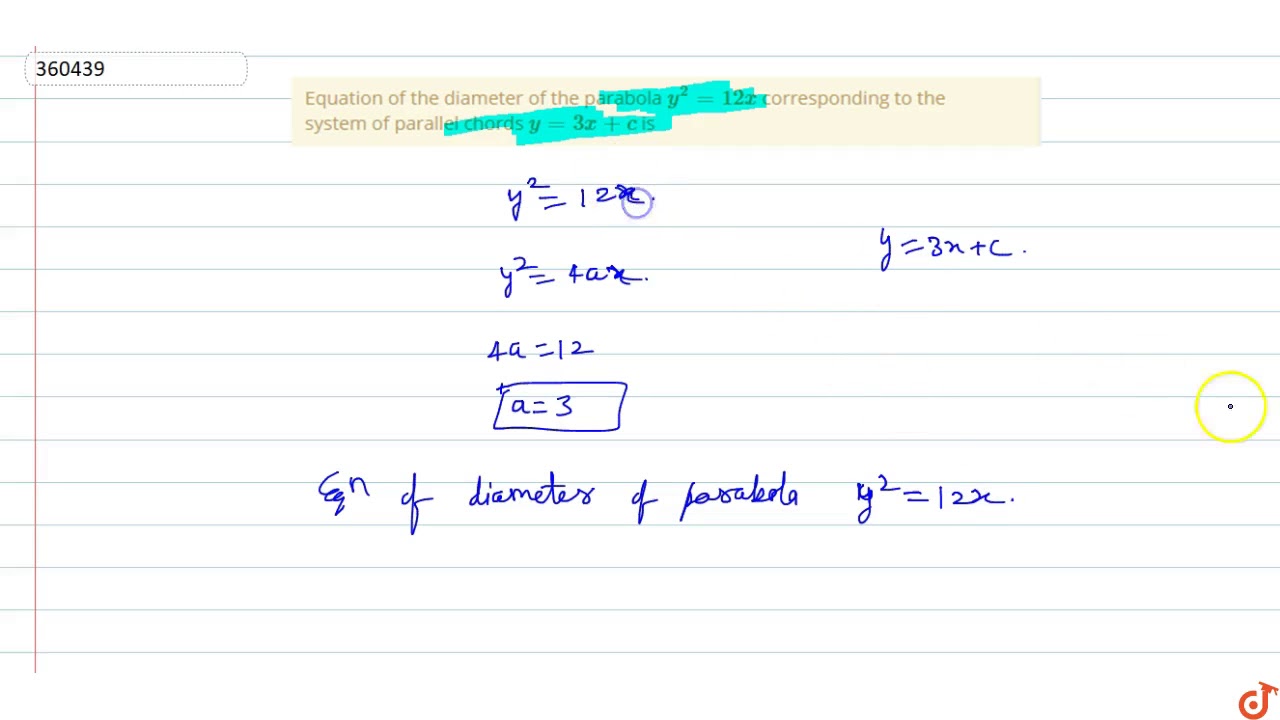 360439
Equation of the diameter of the parabola y² = 12x corresponding to the
system of parallel chords y = 3x + c is
y² = 12x.
y = 3x + c.
y² = 4ax.
4a = 12
a = 3
Eqn of diameter of parabola y² = 12x.